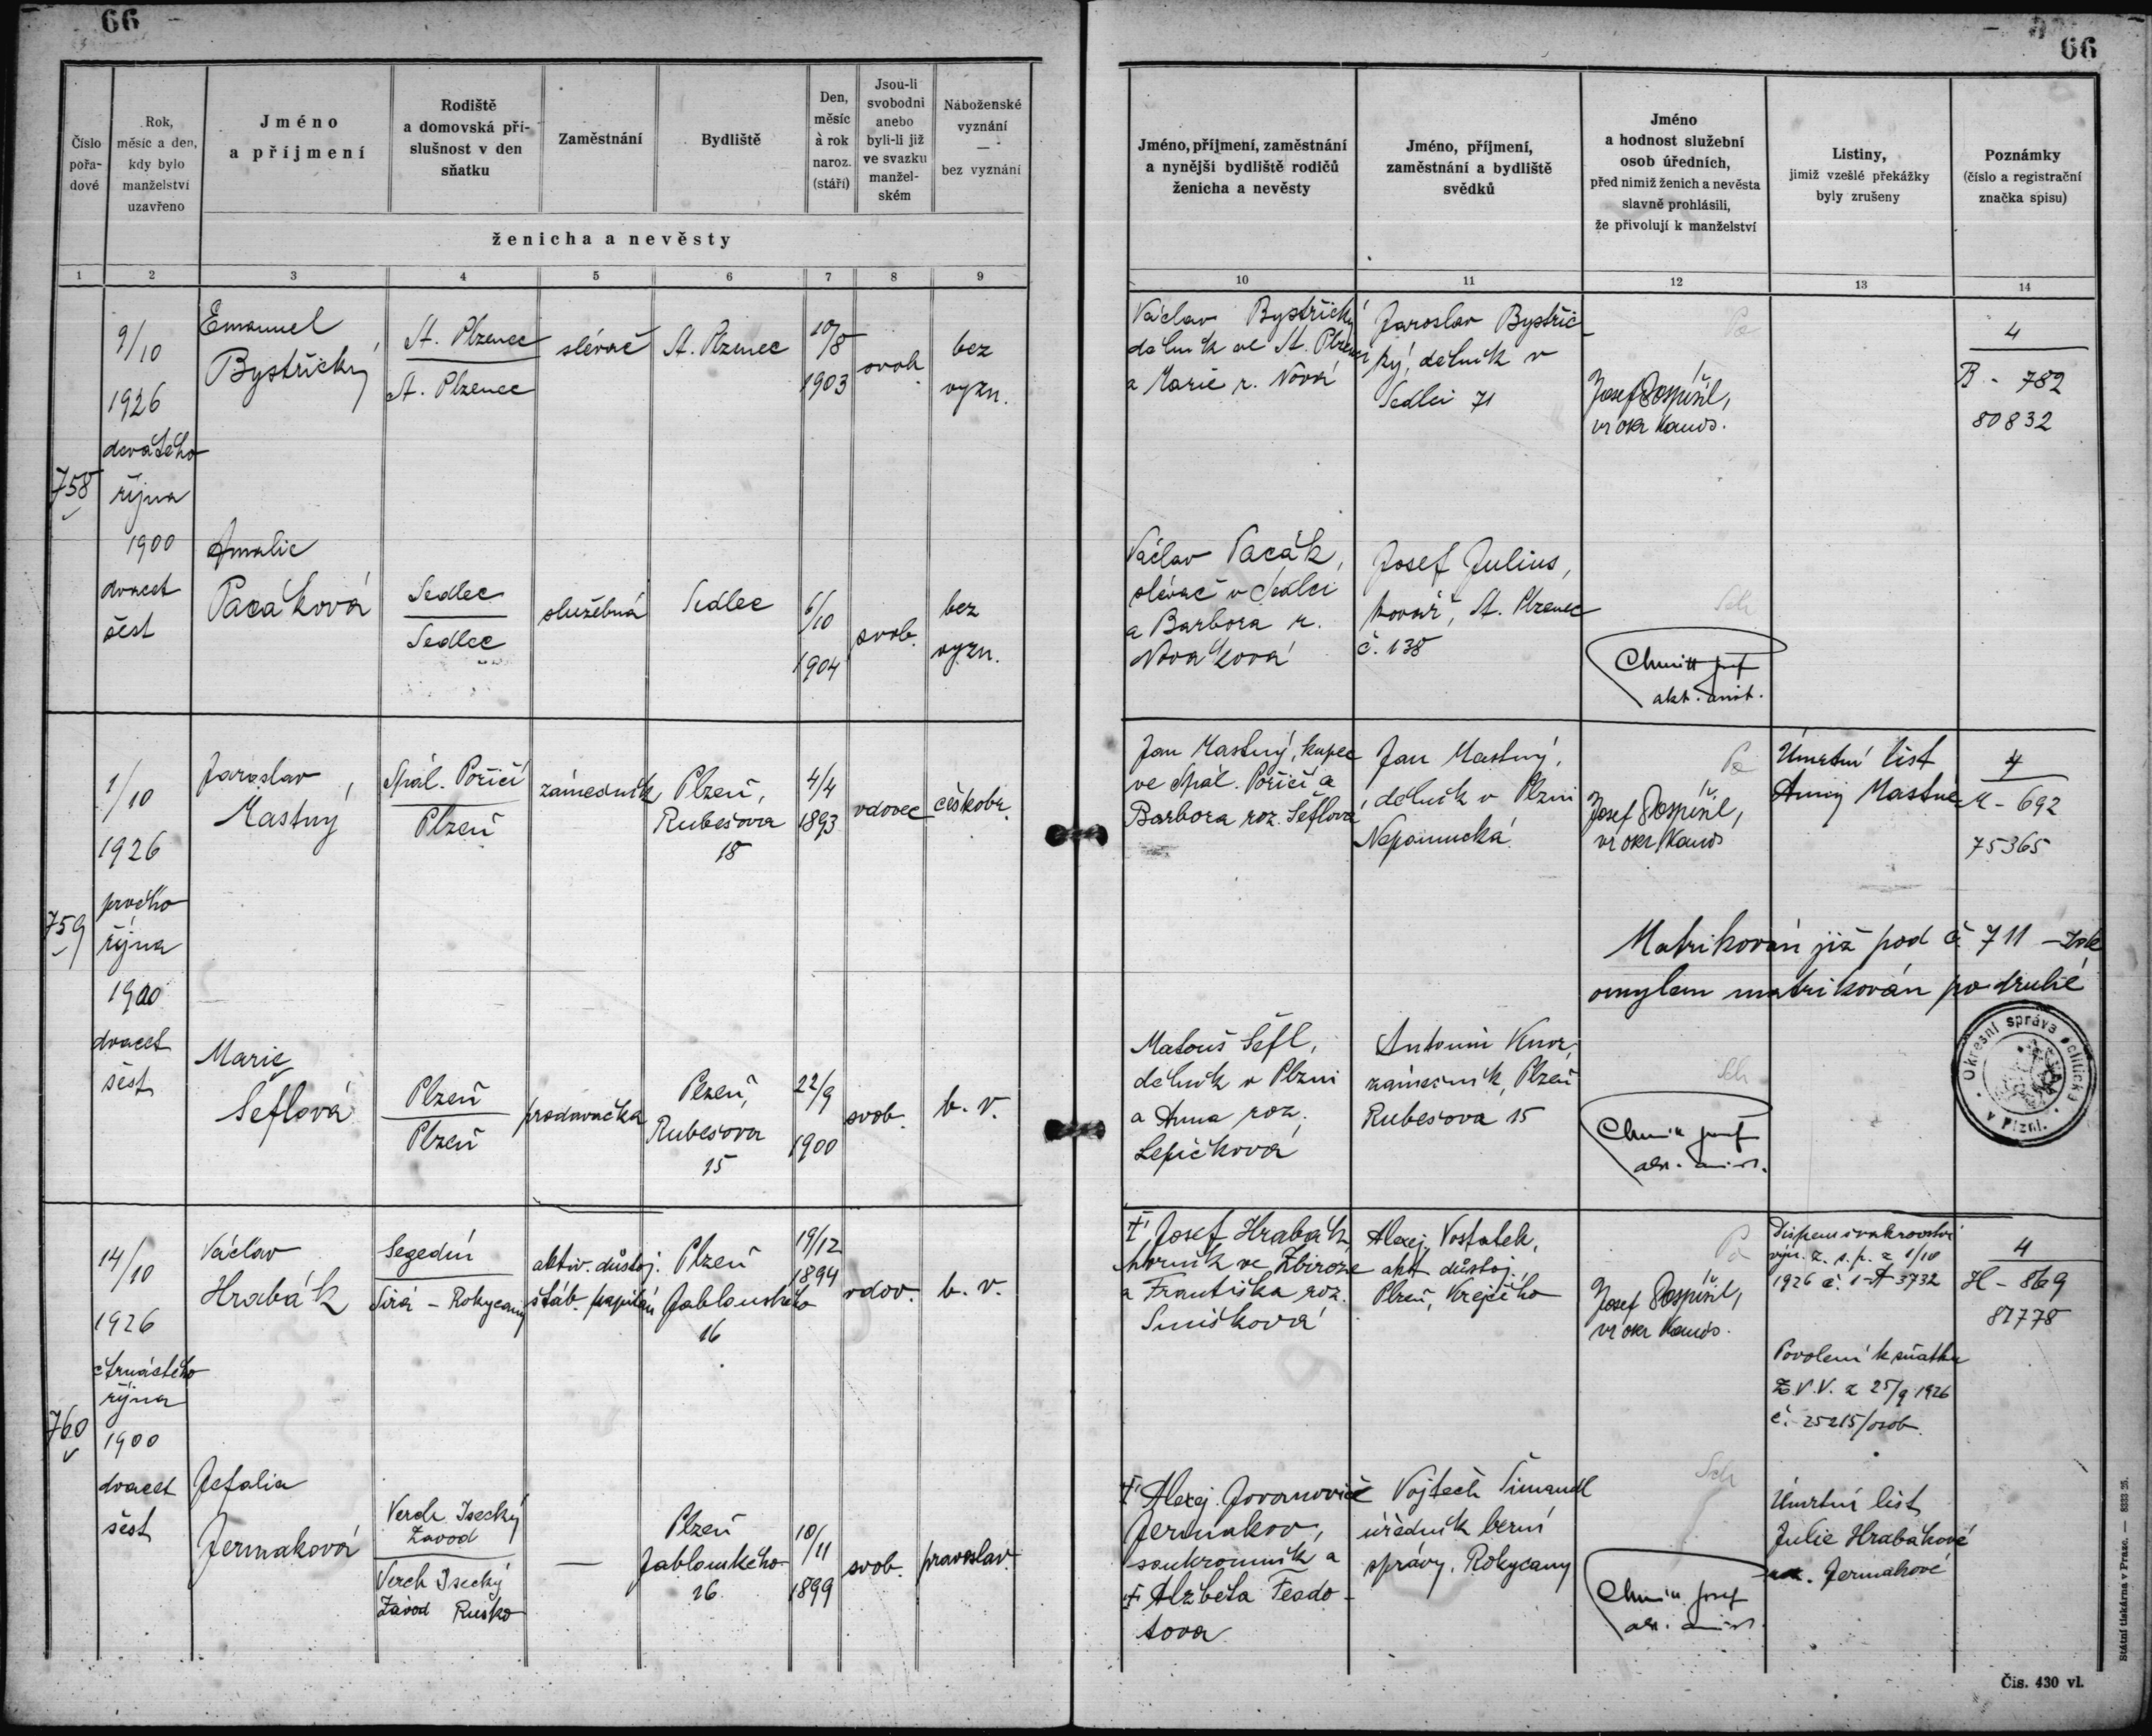 66
66
Číslo pořadové
Rok, měsíc a den, kdy bylo manželství uzavřeno
Jméno a příjmení
Rodiště a domovská příslušnost v den sňatku
Zaměstnání
Bydliště
Den, měsíc à rok naroz. (stáří)
Jsou-li svobodni anebo byli-li již ve svazku manželském
Náboženské vyznání — bez vyznání
ženicha a nevěsty
Jméno, příjmení, zaměstnání a nynější bydliště rodičů ženicha a nevěsty
Jméno, příjmení, zaměstnání a bydliště svědků
Jméno a hodnost služební osob úředních, před nimiž ženich a nevěsta slavně prohlásili, že přivolují k manželství
Listiny, jimiž vzešlé překážky byly zrušeny
Poznámky (číslo a registrační značka spisu)
1 2 3 4 5 6 7 8 9 10 11 12 13 14
758
9/10
1926
devátého
října
1900
dvacet
šest
Emanuel
Bystřický
St. Plzenec
St. Plzenec
slévač
St. Plzenec
10/8
1903
svob.
bez
vyzn.
Václav Bystřický
dělník ve St. Plzenci
a Marie r. Nová
Jaroslav Bystřic-
ký, dělník v
Sedlci 71
Josef Pospíšil,
vr. okr. kands.
4
B - 782
80832
Amalie
Pacáková
Sedlec
Sedlec
služebná
Sedlec
6/10
1904
svob.
bez
vyzn.
Václav Pacák,
slévač v Sedlci
a Barbora r.
Nováková
Josef Julius,
kovář, St. Plzenec
č. 138
Sch
759
1/10
1926
prvého
října
1900
dvacet
šest
Jaroslav
Mastný
Spál. Poříčí
Plzeň
zámečník
Plzeň,
Rubešova
18
4/4
1893
vdovec
českobr.
Jan Mastný, kupec
ve Spál. Poříčí a
Barbora roz. Šeflová
Jan Mastný,
dělník v Plzni
Nepomucká
Josef Pospíšil,
vr. okr. kands
Úmrtní list
Anny Mastné
4
M - 692
75365
Matrikován již pod č 711 – zde
omylem matrikován po druhé
Okresní správa politická v Plzni.
Marie
Šeflová
Plzeň
Plzeň
prodavačka
Plzeň,
Rubešova
15
22/9
1900
svob.
b. v.
Matouš Šefl,
dělník v Plzni
a Anna roz.
Lepičková
Antonín Knor,
zámečník, Plzeň
Rubešova 15
Sch
760
14/10
1926
čtrnáctého
října
1900
dvacet
šest
Václav
Hrabák
Segedín
Sirá - Rokycany
aktiv. důstoj.
štáb. kapitán
Plzeň
Jablonského
16
19/12
1894
vdov.
b. v.
† Josef Hrabák
horník ve Zbiroze
a Františka roz.
Simišková
Alexej Vostatek,
akt. důstoj.,
Plzeň, Krejčího
Josef Pospíšil,
vr. okr. kands.
Dispens švakrovství
výn. z. s. p. z 1/10
1926 č. 1-A 3732
Povolení k sňatku
Z.V.V. z 25/9 1926
č. 25215/osob.
4
H - 869
81778
Jefalia
Jermaková
Verch Isecký
Zavod
Verch Isecký
Závod Rusko
—
Plzeň
Jablonského
16
10/11
1899
svob.
pravoslav.
† Alexej Jovanovič
Jermakov,
soukromník a
† Alžběta Feado-
tova
Vojtěch Šimandl
úředník berní
správy, Rokycany
Sch
Úmrtní list
Julie Hrabákové
roz. Jermakové
Státní tiskárna v Praze. — 8333 26.
Čís. 430 vl.